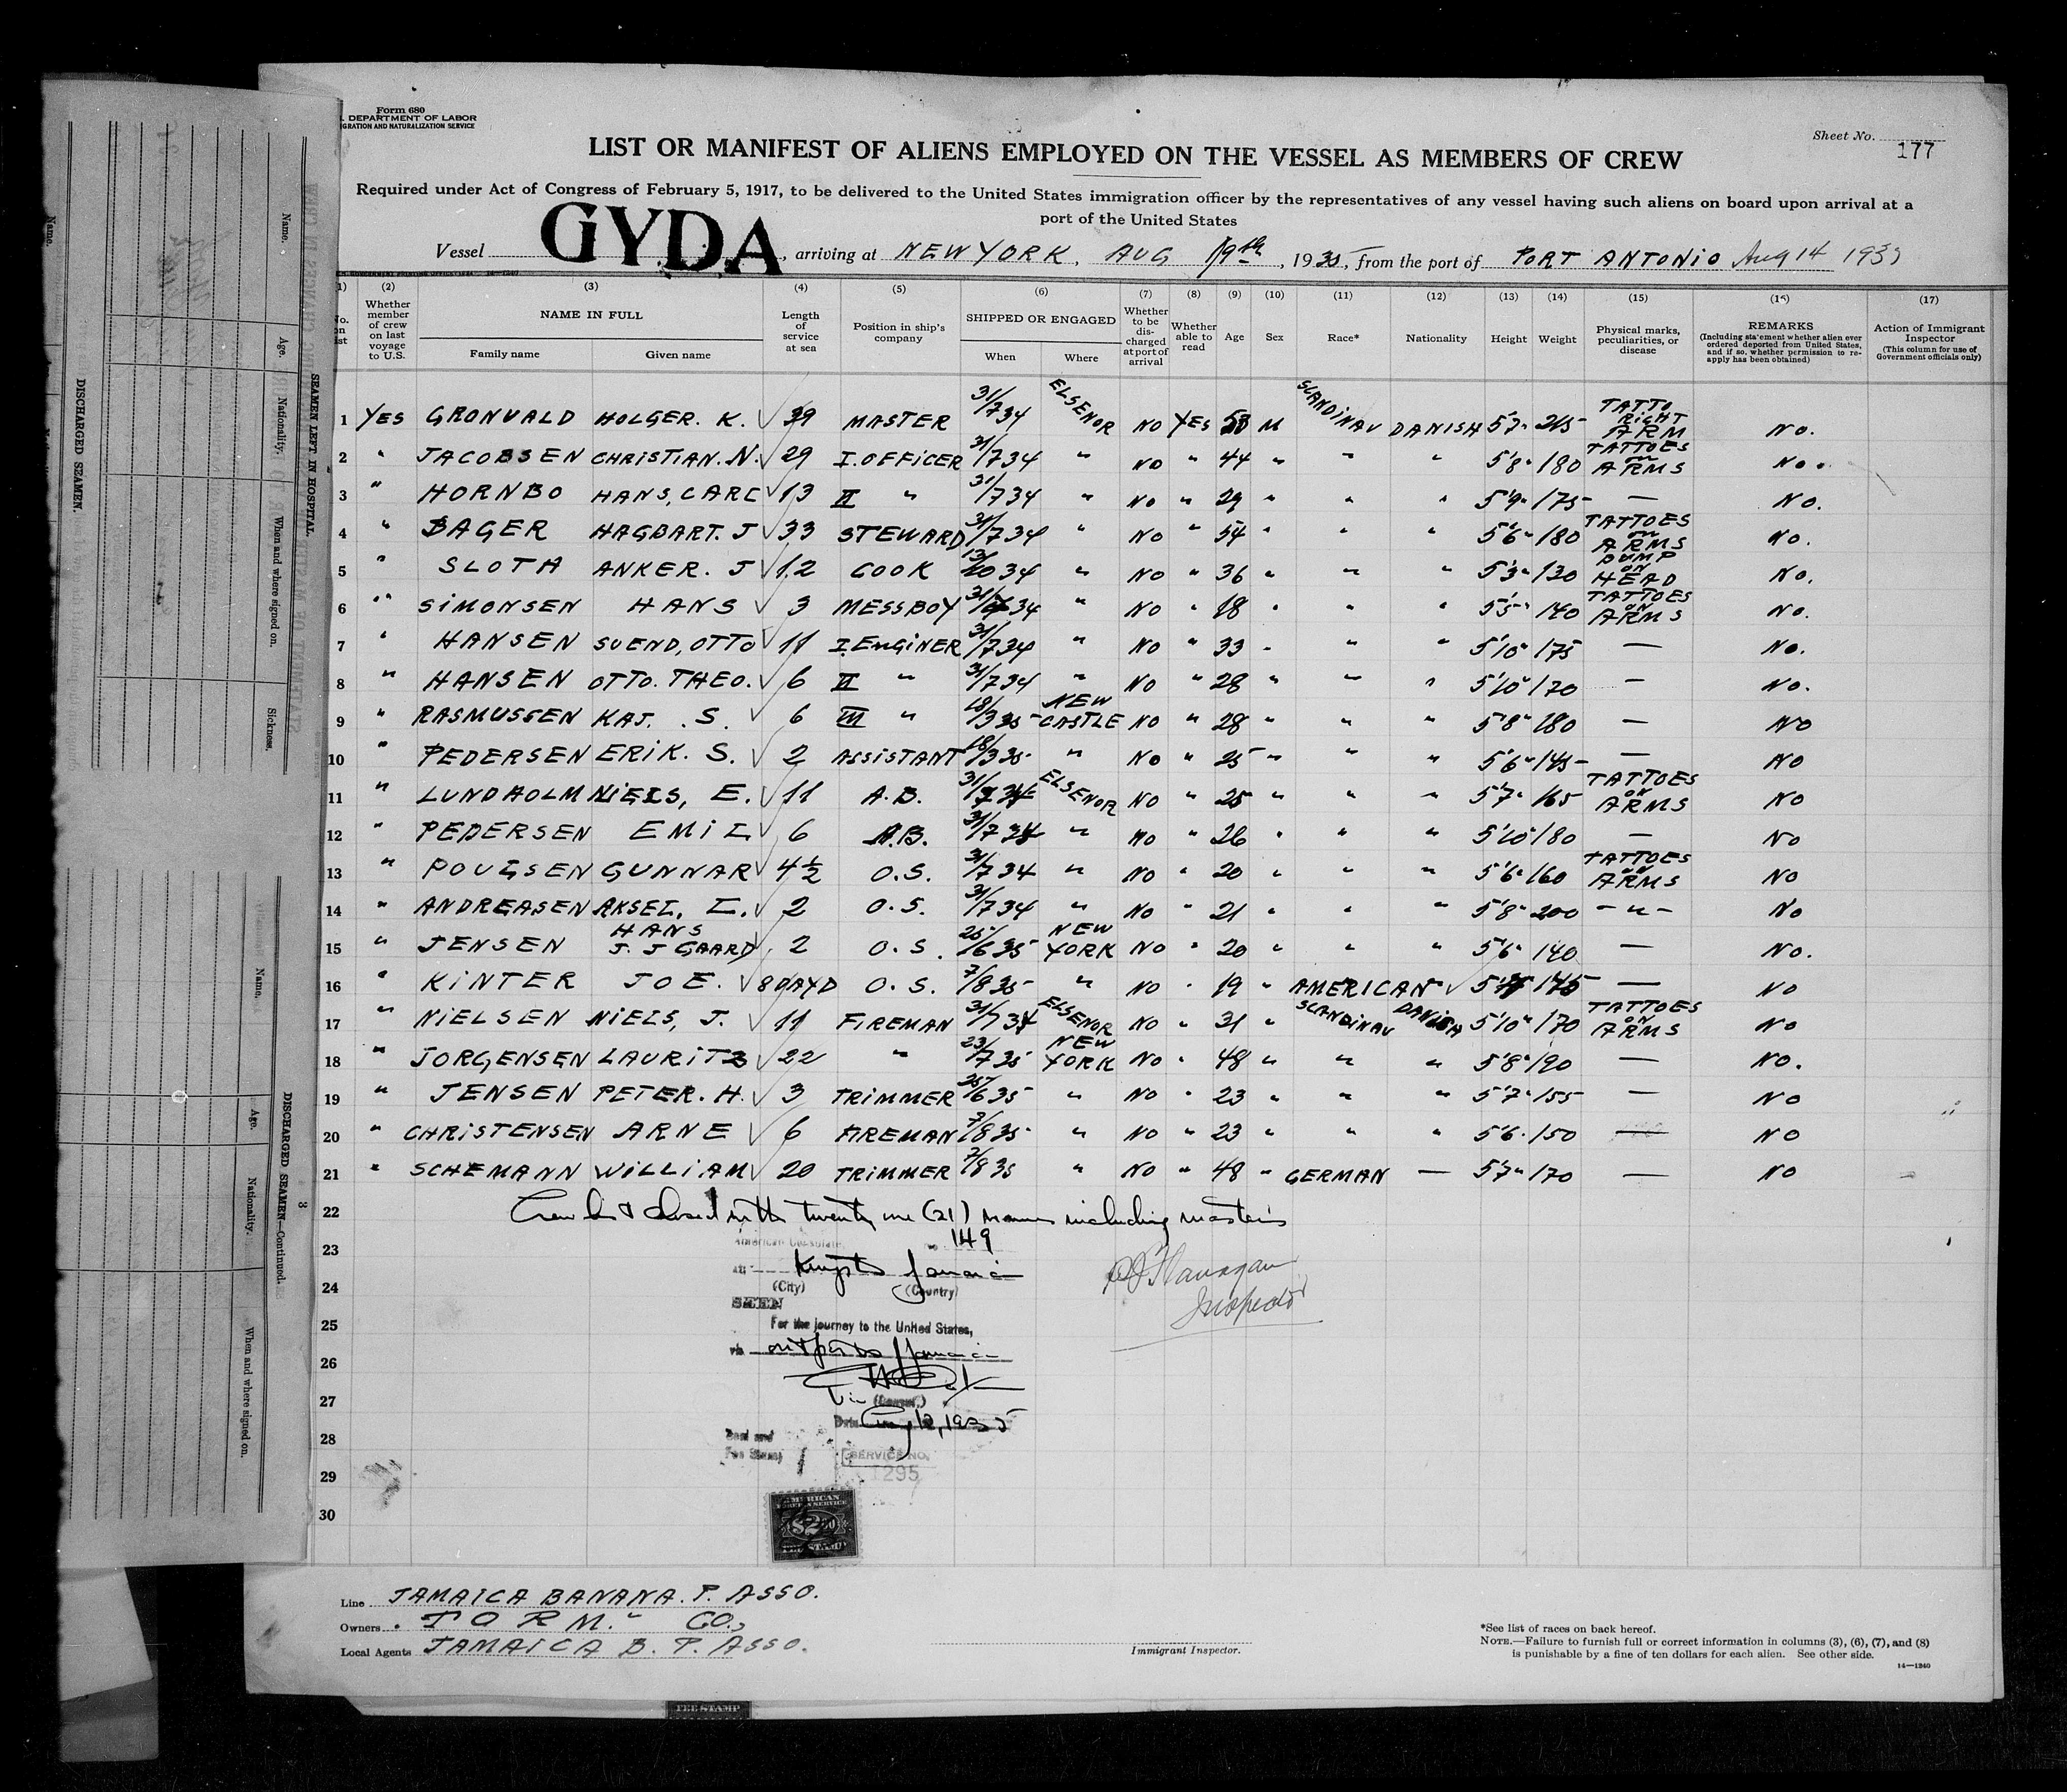 Form 680
DEPARTMENT OF LABOR
IGRATION AND NATURALIZATION SERVICE
Sheet No.
177
LIST OR MANIFEST OF ALIENS EMPLOYED ON THE VESSEL AS MEMBERS OF CREW
Required under Act of Congress of February 5, 1917, to be delivered to the United States immigration officer by the representatives of any vessel having such aliens on board upon arrival at a
port of the United States
Vessel GYDA, arriving at NEW YORK, AUG 19th, 1935, from the port of PORT ANTONIO Aug 14 1935
(2) (3) (4) (5) (6) (7) (8) (9) (10) (11) (12) (13) (14) (15) (16) (17)
Whether member of crew on last voyage to U.S. NAME IN FULL Family name Given name Length of service at sea Position in ship's company SHIPPED OR ENGAGED When Where Whether to be discharged at port of arrival Whether able to read Age Sex Race* Nationality Height Weight Physical marks, peculiarities, or disease REMARKS (Including statement whether alien ever ordered deported from United States, and if so, whether permission to re-apply has been obtained) Action of Immigrant Inspector (This column for use of Government officials only)
1 YES GRONVALD HOLGER. K. 39 MASTER 31/7 34 ELSENOR NO YES 58 M SCANDINAV DANISH 5'7" 215 TATTO RIGHT ARM NO.
2 " JACOBSEN CHRISTIAN. N. 29 I. OFFICER 31/7 34 " NO " 44 " " " 5'8" 180 TATTOES on ARMS NO.
3 " HORNBO HANS, CARL 13 II " 31/7 34 " NO " 29 " " " 5'9" 175 — NO.
4 " BAGER HAGBART. J 33 STEWARD 31/7 34 " NO " 54 " " " 5'6" 180 TATTOES on ARMS NO.
5 " SLOTH ANKER. J 12 COOK 13/10 34 " NO " 36 " " " 5'3" 130 BUMP ON HEAD NO.
6 " SIMONSEN HANS 3 MESSBOY 31/7 34 " NO " 18 " " " 5'5" 140 TATTOES ON ARMS NO.
7 " HANSEN SVEND, OTTO 11 I. EnGiNER 31/7 34 " NO " 33 " " " 5'10" 175 — NO.
8 " HANSEN OTTO. THEO. 6 II " 31/7 34 " NO " 28 " " " 5'10" 170 — NO.
9 " RASMUSSEN KAJ. S. 6 III " 18/3 35 NEW CASTLE NO " 28 " " " 5'8" 180 — NO
10 " PEDERSEN ERIK. S. 2 ASSISTANT 18/3 35 " NO " 25 " " " 5'6" 145 — NO
11 " LUNDHOLM NIELS, E. 11 A.B. 31/7 34 ELSENOR NO " 25 " " " 5'7" 165 TATTOES ON ARMS NO
12 " PEDERSEN EMIL 6 A.B. 31/7 34 " NO " 26 " " " 5'10" 180 — NO
13 " POULSEN GUNNAR 4½ O.S. 31/7 34 " NO " 20 " " " 5'6" 160 TATTOES ON ARMS NO
14 " ANDREASEN AKSEL, L. 2 O.S. 31/7 34 " NO " 21 " " " 5'8" 200 — " — NO
15 " JENSEN HANS J. J GAARD 2 O.S. 25/6 35 NEW YORK NO " 20 " " " 5'6" 140 — NO.
16 " KINTER JOE. 8 DAYD O.S. 7/8 35 " NO " 19 " AMERICAN 145 — NO
17 " NIELSEN NIELS, J. 11 FIREMAN 31/7 34 ELSENOR NO " 31 " SCANDINAV DANISH 5'10" 170 TATTOES ON ARMS NO
18 " JORGENSEN LAURITS 22 " 23/7 35 NEW YORK NO " 48 " " " 5'8" 190 — NO.
19 " JENSEN PETER. H. 3 TRIMMER 25/6 35 " NO " 23 " " " 5'7" 155 — NO
20 " CHRISTENSEN ARNE 6 FIREMAN 7/8 35 " NO " 23 " " " 5'6" 150 — NO
21 " SCHEMANN WILLIAM 20 TRIMMER 7/8 35 " NO " 48 " GERMAN — 5'7" 170 — NO
22 Crew list closed with twenty one (21) names including master's
23 American Consulate No. 149
24 Kingston Jamaica
(City) (Country)
SEEN
D J Flanagan
Inspector
25 For the journey to the United States,
26 via outports Jamaica
27 Vice (Consul.)
Date Aug 12, 1935
28 Seal and
Fee Stamp
SERVICE NO.
29 1295
30
AMERICAN
FOREIGN SERVICE
FEE STAMP
Line JAMAICA BANANA. P. ASSO.
Owners TORM. CO.,
Local Agents JAMAICA B. P. ASSO.
Immigrant Inspector.
*See list of races on back hereof.
NOTE.—Failure to furnish full or correct information in columns (3), (6), (7), and (8)
is punishable by a fine of ten dollars for each alien. See other side.
14—1240
FEE STAMP
SEAMEN LEFT IN HOSPITAL.
Name. Age. Nationality. When and where signed on. Sickness.
DISCHARGED SEAMEN.
Name.
DISCHARGED SEAMEN—Continued.
Name. Age. Nationality. When and where signed on.
3